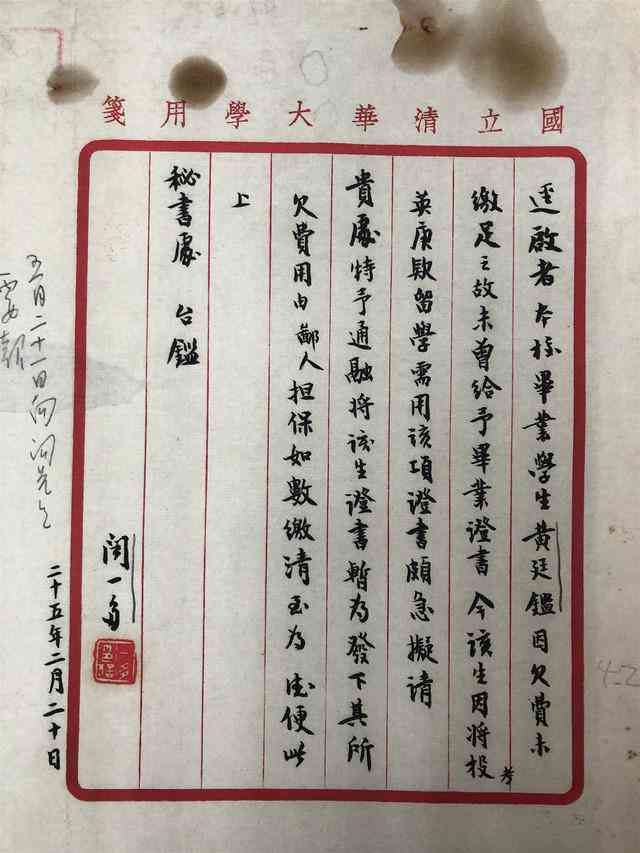 國立清華大學用箋
逕啟者 本校畢業學生黃廷鑑因欠費未
繳足之故未曾給予畢業證書 今該生因將投考
英庚款留學需用該項證書頗急擬請
貴處特予通融將該生證書暫為發下其所
欠費用由鄙人担保如數繳清至為 德便此
上
秘書處 台鑑
聞一多
二十五年二月二十日
五月二十一日向闻先生